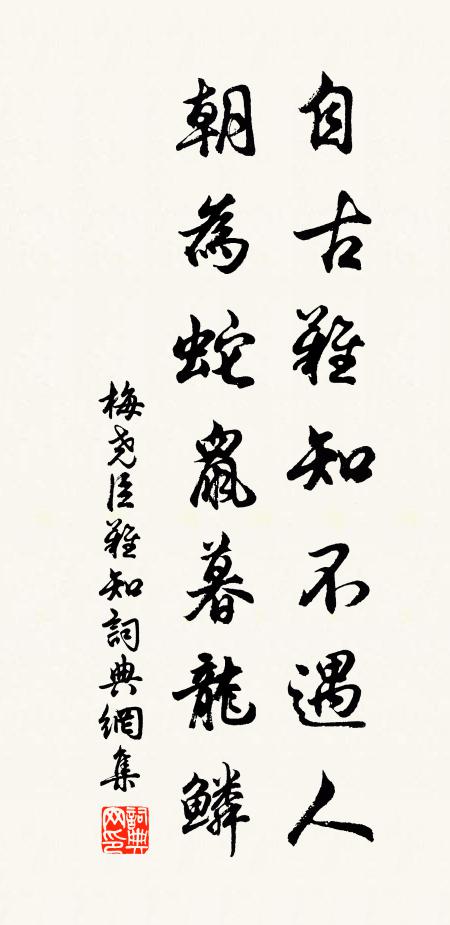 自古難知不遇人
朝為蛇鼠暮龍鱗
梅堯臣難知詞典網集
詞典網印